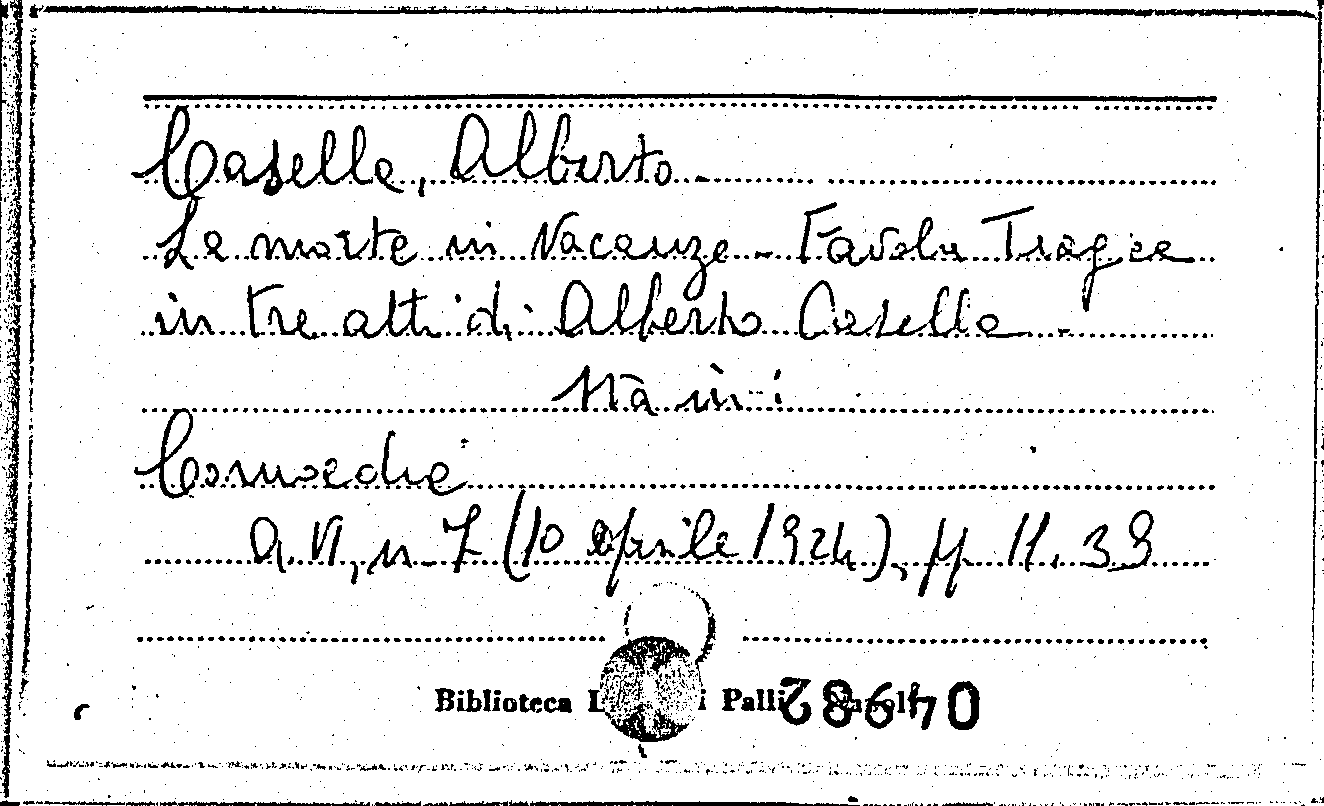 Casella, Alberto -
La morte in Vacanze - Favola Tragica
in tre atti di Alberto Casella -
Sta in:
Comoedia
a. VI, n. 7 (10 aprile 1924), pp 11. 39
Biblioteca